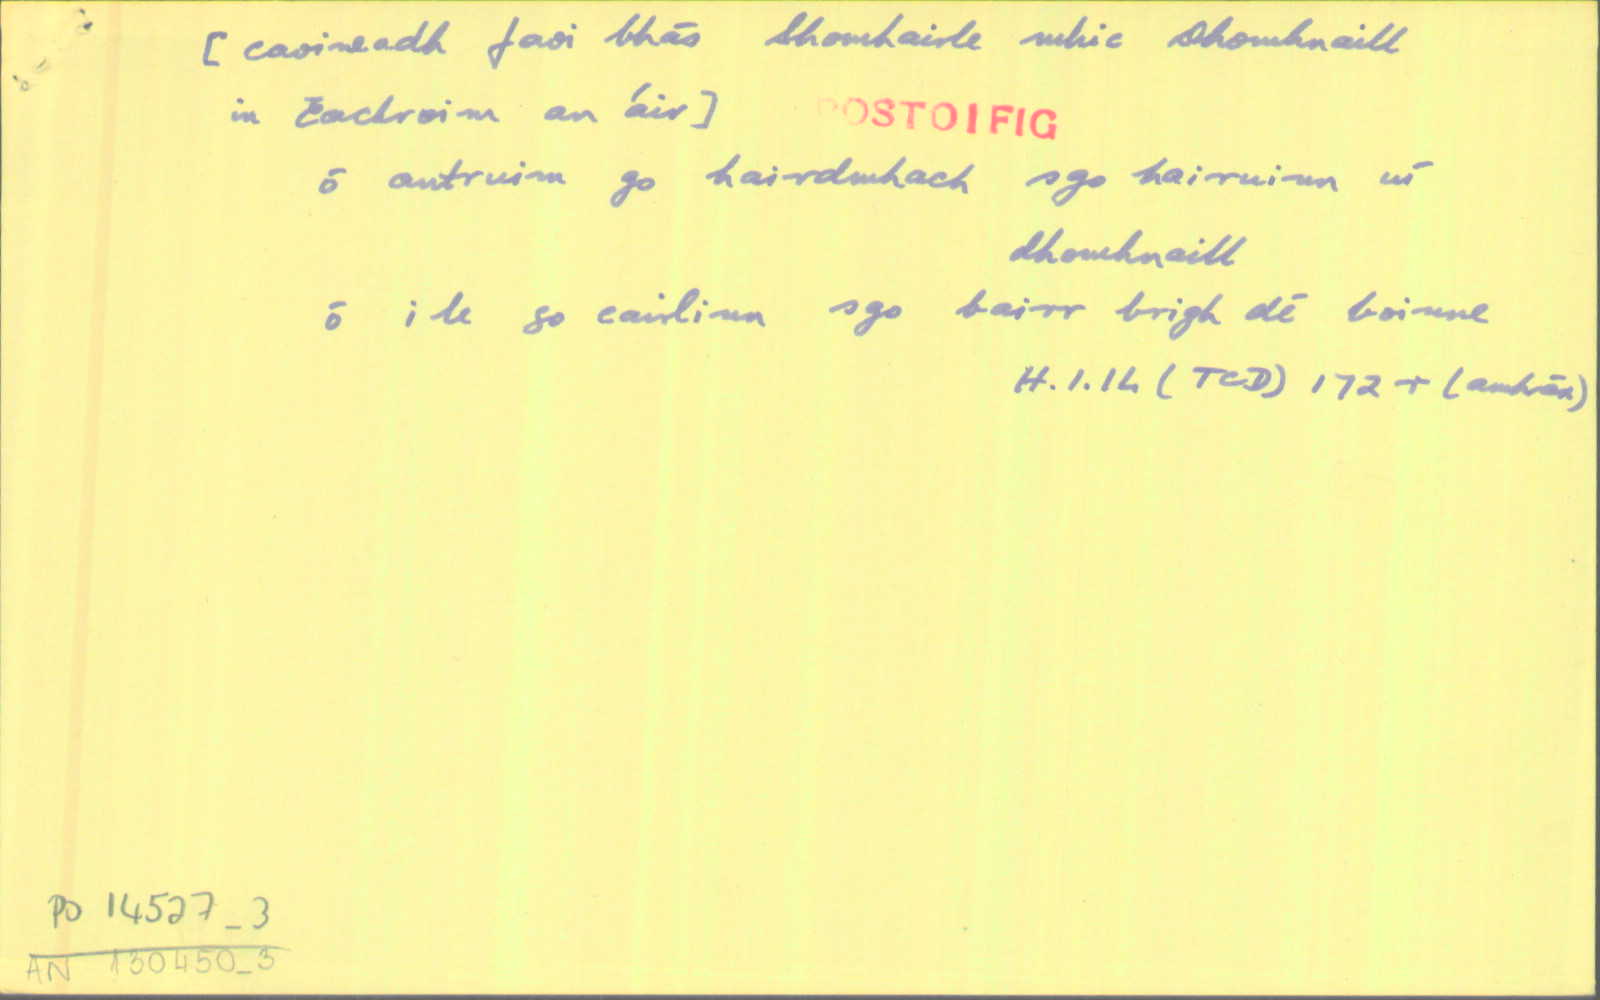 [caoineadh faoi bhás Shomhairle mhic Dhomhnaill
in Eachroim an áir] POSTOIFIG
ó antruim go hairdmhach sgo hairuinn uí
dhomhnaill
ó ile go cairlinn sgo bairr brigh dé boinne
H.1.14 (TCD) 172 r (amhrán)
PO 14527_3
AN 130450_3